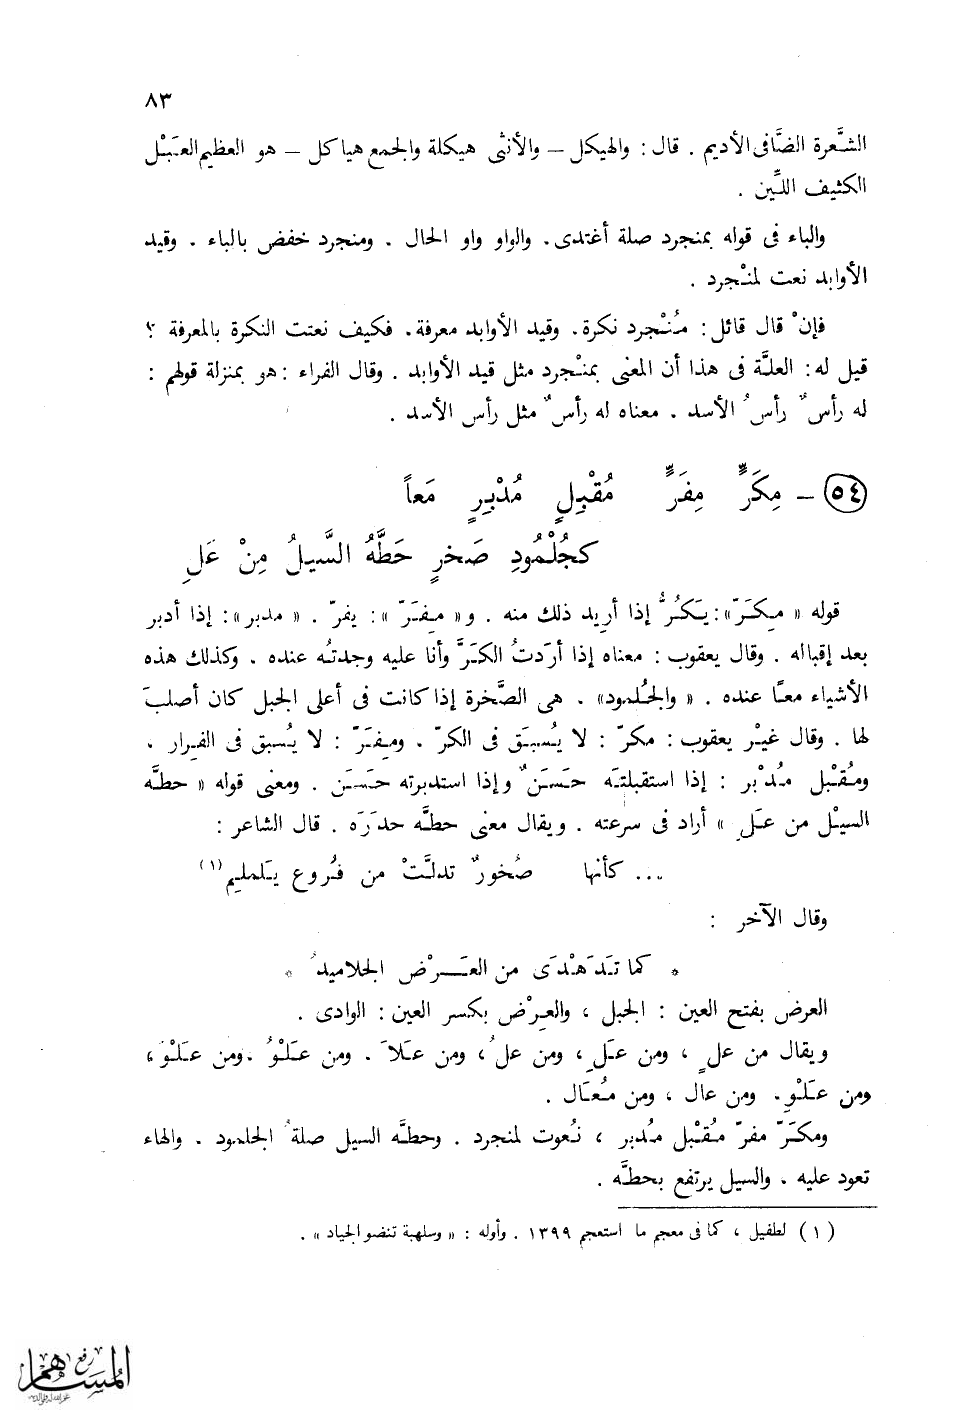 ٨٣
الشَّعرة الضَّافى الأديم . قال : والهيكل – والأنثى هيكلة والجمع هياكل – هو العظيم العَبْل
الكثيف اللَّين .
والباء فى قوله بمنجرد صلة أغتدى . والواو واو الحال . ومنجرد خفض بالباء . وقيد
الأوابد نعت لمنْجرد .
فإنْ قال قائل : مُنْجرد نكرة . وقيد الأوابد معرفة . فكيف نعتت النكرة بالمعرفة ؟
قيل له : العلَّة فى هذا أن المعنى بمنْجرد مثل قيد الأوابد . وقال الفراء : هو بمنزلة قولهم :
له رأسٌ رأسُ الأسد . معناه له رأسٌ مثل رأس الأسد .
٥٤ – مِكَرٍّ مِفَرٍّ مُقْبِلٍ مُدْبِرٍ مَعاً
كجُلْمُودِ صَخرٍ حَطَّهُ السَّيلُ مِنْ عَلِ
قوله « مِكَرّ » : يَكُرُّ إذا أريد ذلك منه . و « مِفَرّ » : يفرّ . « مدبر » : إذا أدبر
بعد إقباله . وقال يعقوب : معناه إذا أردتُ الكَرَّ وأنا عليه وجدتُه عنده . وكذلك هذه
الأشياء معًا عنده . « والجُلمود » . هى الصَّخرة إذا كانت فى أعلى الجبل كان أصلبَ
لها . وقال غيْر يعقوب : مكرّ : لا يُسبَق فى الكرّ . ومِفَرّ : لا يُسبق فى الفِرار ،
ومُقْبل مُدْبر : إذا استقبلتَه حَسَنٌ وإذا استدبرته حَسَن . ومعنى قوله « حطَّه
السيْل من عَلِ » أراد فى سرعته . ويقال معنى حطَّه حدَرَه . قال الشاعر :
... كأنها صُخورٌ تدلَّتْ من فُروع يَلملِم (١)
وقال الآخر :
* كما تَدَهْدَى من العَرْض الجلاميدُ *
العرض بفتح العين : الجبل ، والعِرْض بكسر العين : الوادى .
ويقال من علٍ ، ومن عَلِ ، ومن علُ ، ومن عَلاَ . ومن عَلْوُ . ومن عَلْوَ ،
ومن عَلْوِ . ومن عال ، ومن مُعَال .
ومكَرّ مفرّ مُقْبل مُدبر ، نُعوت لمنجرد . وحطَّه السيل صلةُ الجلمود . والهاء
تعود عليه . والسيل يرتفع بحطَّه .
(١) لطفيل ، كما فى معجم ما استعجم ١٣٩٩ . وأوله : « وسلهبة تنضو الجياد » .